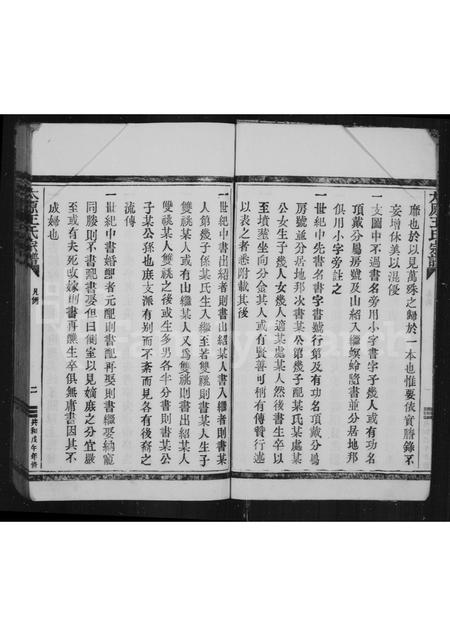 太原王氏宗譜
靡也於以見萬殊之歸於一本也惟要依實謄錄不
妄增休美以混優
一支圖中不過書名旁用小字書字子幾人或有功名
頂戴分屬房號及出紹入繼螟蛉隨書並分居地那
俱用小字旁註之
一世紀中先書名書字書號行第及有功名頂戴分屬
房號並分居地那次書某公第幾子配某氏某處某
公女生子幾人女幾人適某處某人然後書生卒以
至墳塋坐向分金其人或有賢善可稱有傳贊行述
以表之者悉附載其後
一世紀中書出紹者則書出紹某人書入繼者則書某
人第幾子係某氏生入繼至若雙祧則書某人生子
雙祧某人或有出繼某人又爲雙祧則書出紹某人
又繼某人雙祧之後或生多男各半分書則書某公
子某公孫也庶支派有别而不紊而見各有後裔之
流傳
一世紀中書婚娶者元配則書配再娶則書繼娶納寵
同媵則不書配書娶但曰側室以見嫡庶之分宜嚴
至或有夫死改嫁則書再醮生卒俱無庸書因其不
成婦也
太原王氏宗譜
凡例
二
共和戊午年修